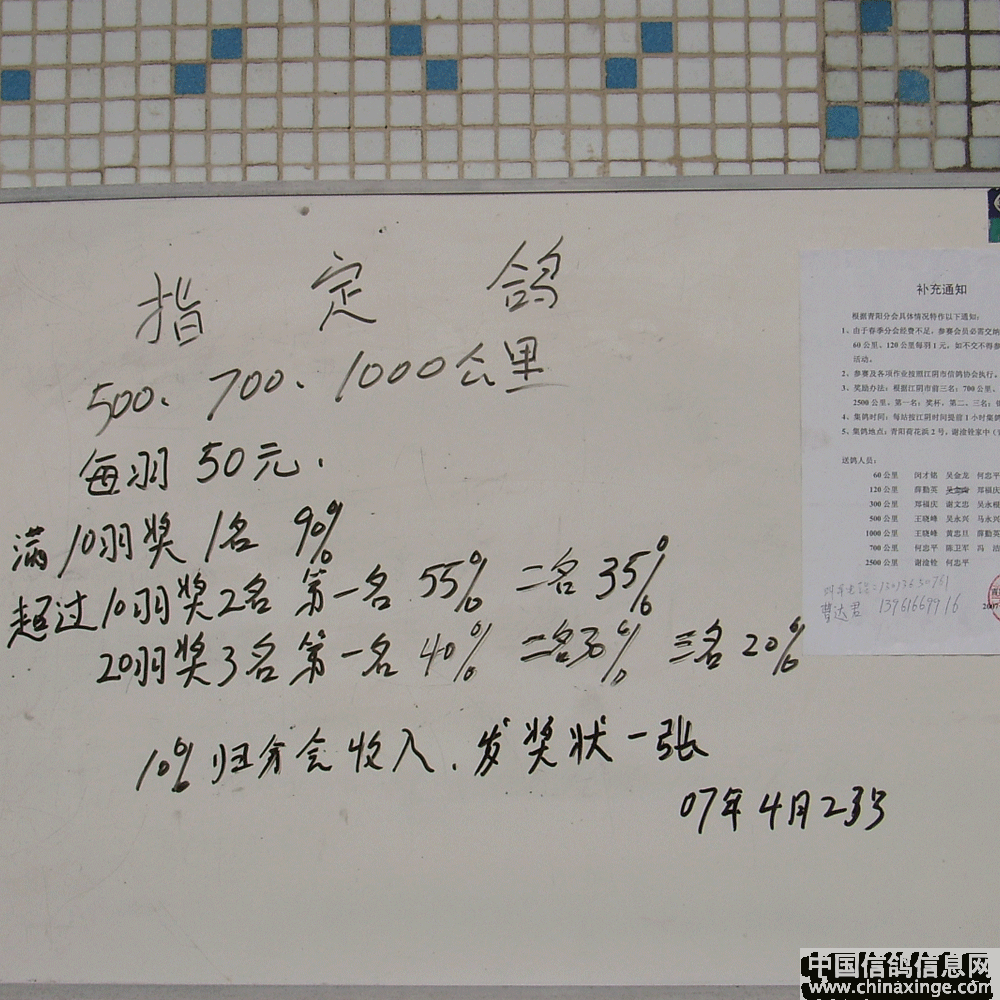 指定鸽
500、700、1000公里
每羽50元.
满10羽奖1名 90%
超过10羽奖2名 第一名55% 二名35%
20羽奖3名第一名40% 二名30% 三名20%
10%归分会收入.发奖状一张
07年4月23号
补充通知
根据青阳分会具体情况特作以下通知:
1、由于春季分会经费不足,参赛会员必需交纳
60公里、120公里每羽1元,如不交不得参
活动。
2、参赛及各项作业按照江阴市信鸽协会执行。
3、奖励办法:根据江阴市前三名:700公里、
2500公里,第一名:奖杯,第二、三名:
4、集鸽时间:每站按江阴时间提前1小时集鸽
5、集鸽地点:青阳荷花浜2号,谢渝铨家中
送鸽人员:
60公里 闵才铭 吴金龙 何忠平
120公里 薛勤英 郑福庆
300公里 郑福庆 谢文忠 吴永根
500公里 王晓峰 吴永兴 马永兴
1000公里 王晓峰 黄忠旦 薛勤英
700公里 何忠平 陈卫军 冯
2500公里 谢渝铨 何忠平
曹达君 13961669916
2007
中国信鸽信息网
www.chinaxinge.com